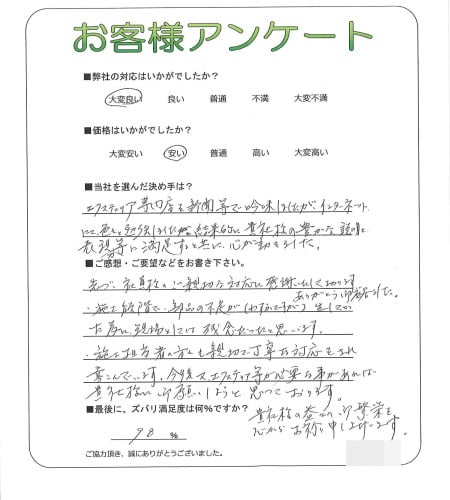 お客様アンケート
■弊社の対応はいかがでしたか?
大変良い 良い 普通 不満 大変不満
■価格はいかがでしたか?
大変安い 安い 普通 高い 大変高い
■当社を選んだ決め手は?
エクステリア専門店を新聞等で吟味しましたがインターネット
にて色々勉強しました。結果的に貴社様の豊かな説明と
表現等に満足すると共に、心が動きました。
■ご感想・ご要望などをお書き下さい。
先づ、社員様のご親切な対応に感謝いたして居ります
ありがとう御座いました。
・施工段階で、部品の不足が(わずかですが)生じて
為に、現場としては残念だったと思います。
・施工担当者の方も親切で丁寧な対応をされ
喜こんでいます。今後又、エクステリア等が必要な事があれば
貴社様に御願いしようと思っております。
■最後に、ズバリ満足度は何%ですか?
貴社様の益々の御繁栄を
心からお祈り申し上げます。
98 %
ご協力頂き、誠にありがとうございました。